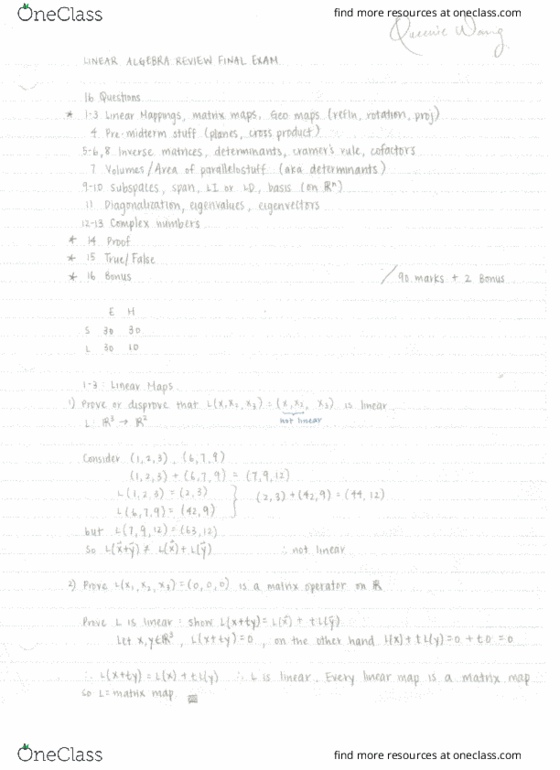 OneClass
find more resources at oneclass.com
Queenie Wang
LINEAR ALGEBRA REVIEW FINAL EXAM
16 Questions
* 1-3 Linear Mappings, matrix maps, Geo maps (refln, rotation, proj)
4 Pre-midterm stuff (planes, cross product)
5-6,8 Inverse matrices, determinants, cramer's rule, cofactors
7 Volumes/Area of parallelostuff (aka determinants)
9-10 Subspaces, span, LI or LD, basis (on ℝⁿ)
11 Diagonalization, eigenvalues, eigenvectors
12-13 Complex numbers
* 14 Proof
* 15 True/False
* 16 Bonus
/90 marks + 2 Bonus
E H
S 30 30
L 30 10
1-3: Linear Maps
1) Prove or disprove that L(x₁x₂, x₃) = (x₁x₂, x₃) is linear
L: ℝ³ → ℝ²
not linear
Consider (1,2,3), (6,7,9)
(1,2,3) + (6,7,9) = (7,9,12)
L(1,2,3) = (2,3)
L(6,7,9) = (42,9)
(2,3)+(42,9) = (44,12)
but L(7,9,12) = (63,12)
So L(x⃗+y⃗) ≠ L(x⃗) + L(y⃗) ∴ not linear
2) Prove L(x₁, x₂, x₃) = (0,0,0) is a matrix operator on ℝ
Prove L is linear: show L(x+ty) = L(x⃗) + tL(y⃗)
Let x,y∈ℝ³, L(x+ty) = 0, on the other hand L(x) + tL(y) = 0 + t0 = 0
∴ L(x+ty) = L(x) + tL(y) ∴ L is linear. Every linear map is a matrix map
so L = matrix map.
OneClass
find more resources at oneclass.com